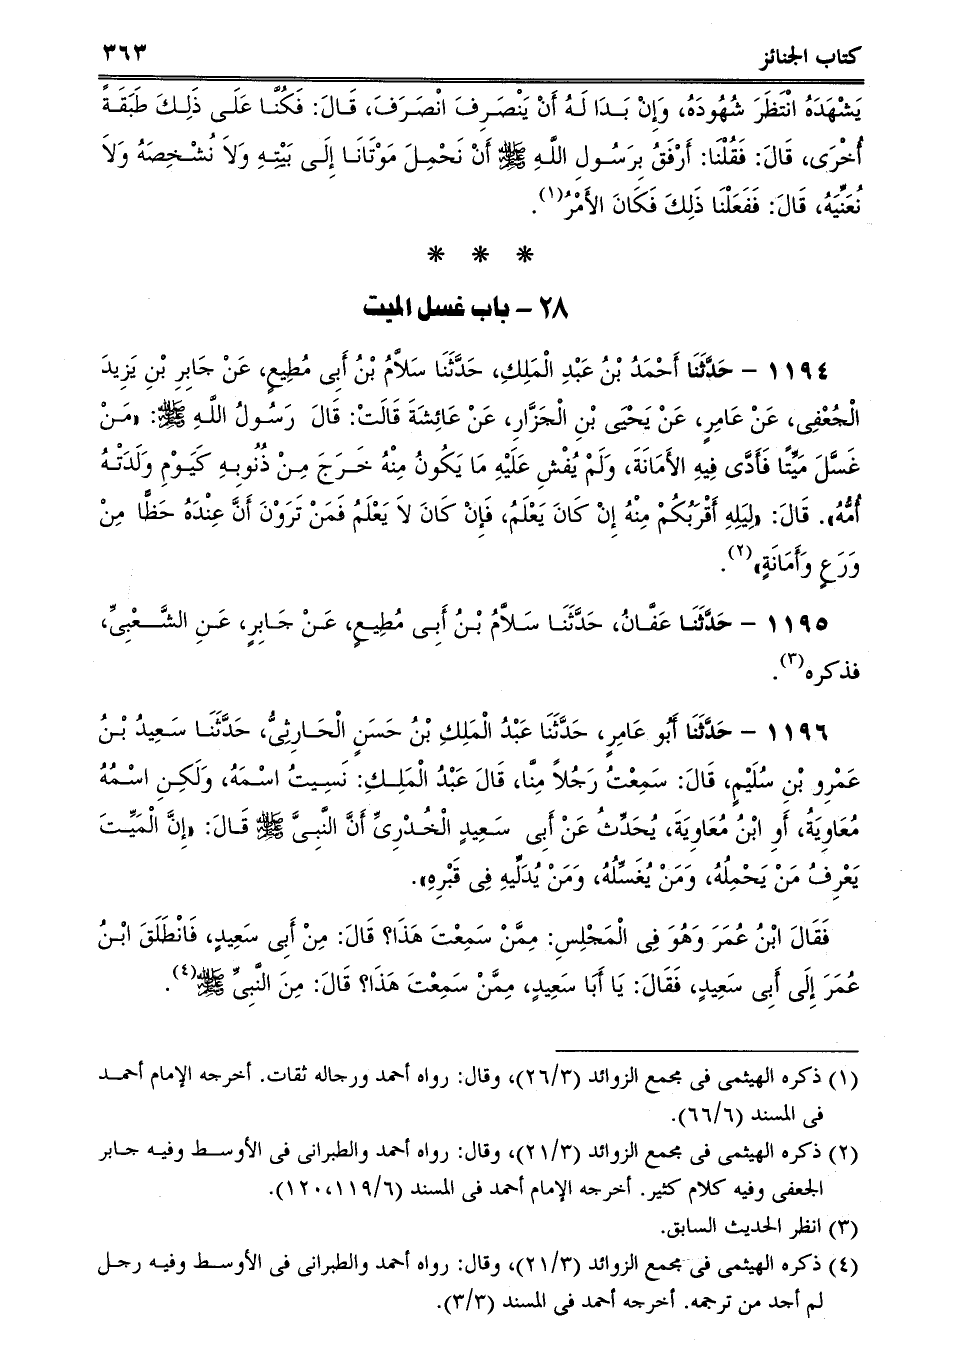 كتاب الجنائز ٣٦٣
يَشْهَدَهُ انْتَظَرَ شُهُودَهُ، وَإِنْ بَدَا لَهُ أَنْ يَنْصَرِفَ انْصَرَفَ، قَالَ: فَكُنَّا عَلَى ذَلِكَ طَبَقَةً
أُخْرَى، قَالَ: فَقُلْنَا: أَرْفَقُ بِرَسُولِ اللَّهِ ﷺ أَنْ نَحْمِلَ مَوْتَانَا إِلَى بَيْتِهِ وَلاَ نُشْخِصَهُ وَلاَ
نُعَنِّيَهُ، قَالَ: فَفَعَلْنَا ذَلِكَ فَكَانَ الأَمْرُ(١).
* * *
٢٨ - باب غسل الميت
١١٩٤ - حَدَّثَنَا أَحْمَدُ بْنُ عَبْدِ الْمَلِكِ، حَدَّثَنَا سَلاَّمُ بْنُ أَبِى مُطِيعٍ، عَنْ جَابِرِ بْنِ يَزِيدَ
الْجُعْفِى، عَنْ عَامِرٍ، عَنْ يَحْيَى بْنِ الْجَزَّارِ، عَنْ عَائِشَةَ قَالَتْ: قَالَ رَسُولُ اللَّهِ ﷺ: «مَنْ
غَسَّلَ مَيِّتًا فَأَدَّى فِيهِ الأَمَانَةَ، وَلَمْ يُفْشِ عَلَيْهِ مَا يَكُونُ مِنْهُ خَرَجَ مِنْ ذُنُوبِهِ كَيَوْمِ وَلَدَتْهُ
أُمُّهُ». قَالَ: «لِيَلِهِ أَقْرَبُكُمْ مِنْهُ إِنْ كَانَ يَعْلَمُ، فَإِنْ كَانَ لاَ يَعْلَمُ فَمَنْ تَرَوْنَ أَنَّ عِنْدَهُ حَظًّا مِنْ
وَرَعٍ وَأَمَانَةٍ»(٢).
١١٩٥ - حَدَّثَنَا عَفَّانُ، حَدَّثَنَا سَلاَّمُ بْنُ أَبِى مُطِيعٍ، عَنْ جَابِرٍ، عَنِ الشَّعْبِىِّ،
فذكره(٣).
١١٩٦ - حَدَّثَنَا أَبُو عَامِرٍ، حَدَّثَنَا عَبْدُ الْمَلِكِ بْنُ حَسَنٍ الْحَارِثِىُّ، حَدَّثَنَا سَعِيدُ بْنُ
عَمْرِو بْنِ سُلَيْمٍ، قَالَ: سَمِعْتُ رَجُلاً مِنَّا، قَالَ عَبْدُ الْمَلِكِ: نَسِيتُ اسْمَهُ، وَلَكِنِ اسْمُهُ
مُعَاوِيَةُ، أَوِ ابْنُ مُعَاوِيَةَ، يُحَدِّثُ عَنْ أَبِى سَعِيدٍ الْخُدْرِىِّ أَنَّ النَّبِىَّ ﷺ قَالَ: «إِنَّ الْمَيِّتَ
يَعْرِفُ مَنْ يَحْمِلُهُ، وَمَنْ يُغَسِّلُهُ، وَمَنْ يُدَلِّيهِ فِى قَبْرِهِ».
فَقَالَ ابْنُ عُمَرَ وَهُوَ فِى الْمَجْلِسِ: مِمَّنْ سَمِعْتَ هَذَا؟ قَالَ: مِنْ أَبِى سَعِيدٍ، فَانْطَلَقَ ابْنُ
عُمَرَ إِلَى أَبِى سَعِيدٍ، فَقَالَ: يَا أَبَا سَعِيدٍ، مِمَّنْ سَمِعْتَ هَذَا؟ قَالَ: مِنَ النَّبِىِّ ﷺ(٤).
(١) ذكره الهيثمى فى مجمع الزوائد (٢٦/٣)، وقال: رواه أحمد ورجاله ثقات. أخرجه الإمام أحمد
فى المسند (٦٦/٦).
(٢) ذكره الهيثمى فى مجمع الزوائد (٢١/٣)، وقال: رواه أحمد والطبرانى فى الأوسط وفيه جابر
الجعفى وفيه كلام كثير. أخرجه الإمام أحمد فى المسند (١١٩/٦، ١٢٠).
(٣) انظر الحديث السابق.
(٤) ذكره الهيثمى فى مجمع الزوائد (٢١/٣)، وقال: رواه أحمد والطبرانى فى الأوسط وفيه رجل
لم أجد من ترجمه. أخرجه أحمد فى المسند (٣/٣).